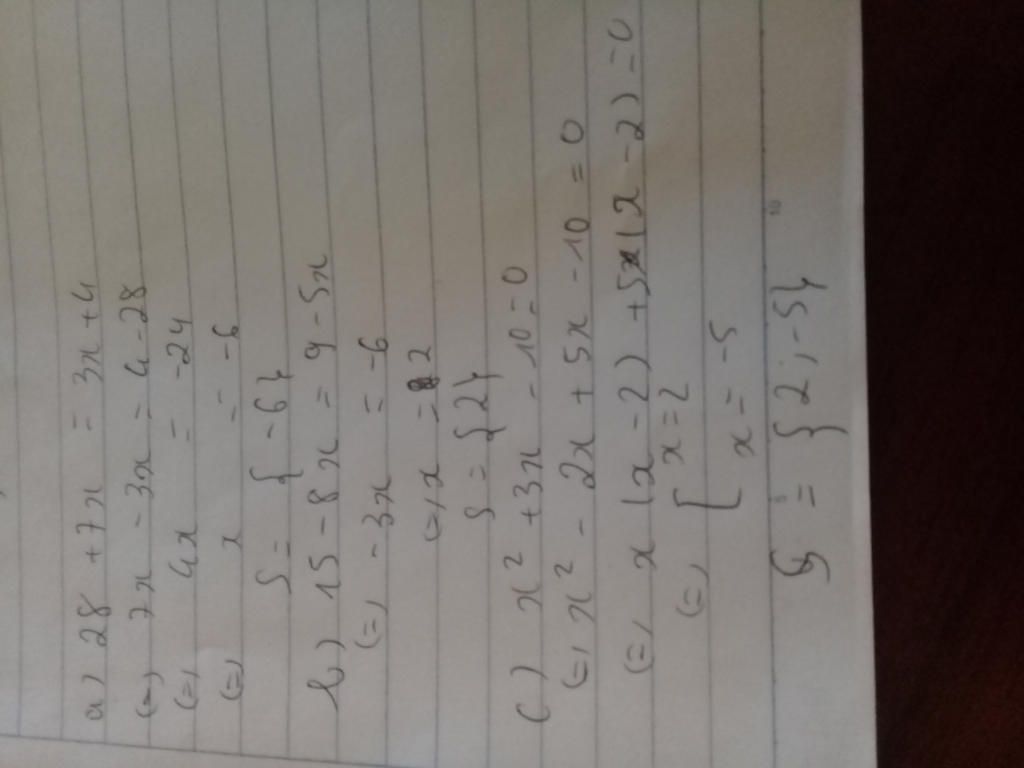 a) 28 + 7x = 3x + 4
(=) 7x - 3x = 4 - 28
(=) 4x = -24
(=) x = -6
S = { -6}
b) 15 - 8x = 9 - 5x
(=) - 3x = -6
(=) x = 2
S = {2}
c) x² + 3x - 10 = 0
(=) x² - 2x + 5x - 10 = 0
(=) x (x - 2) + 5x(x - 2) = 0
(=) [ x = 2
x = -5
S = { 2 ; -5}